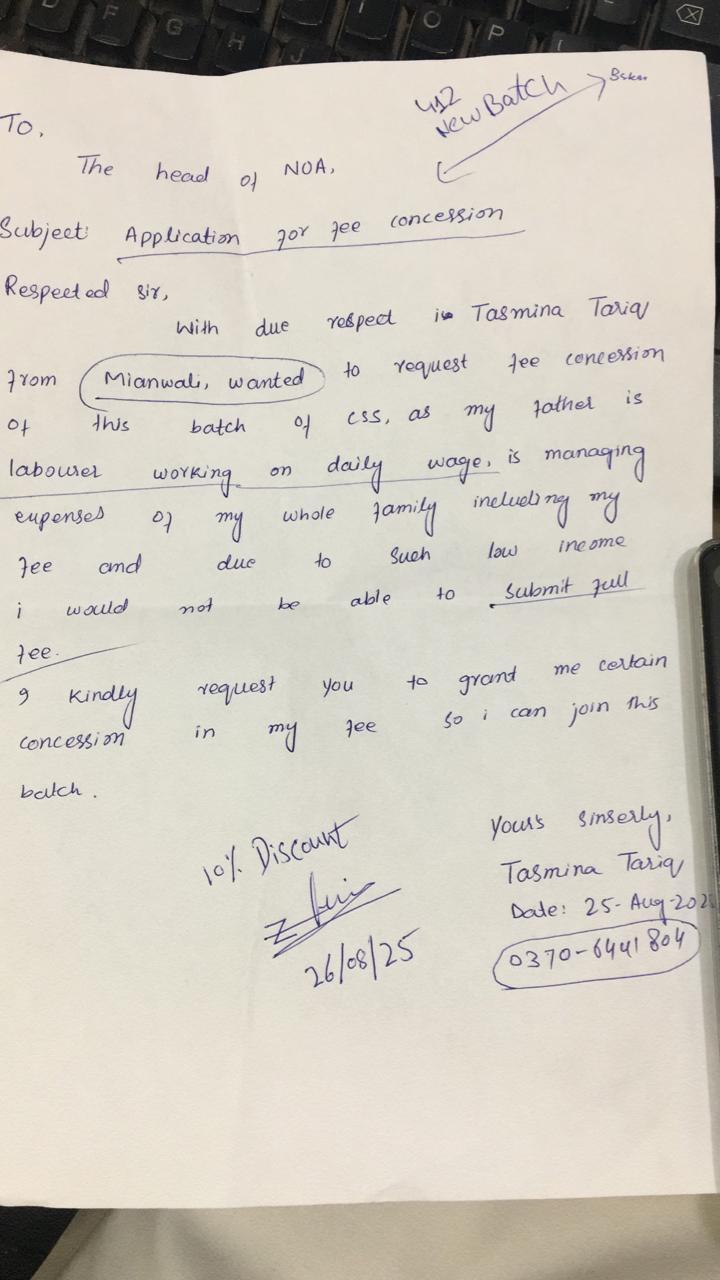 412
New Batch
To,
The head of NOA,
Subject: Application for fee concession
Respected sir,
With due respect i Tasmina Tariq
from Mianwali, wanted to request fee concession
of this batch of css, as my father is
labouser working on daily wage, is managing
expenses of my whole family including my
fee and due to such low income
i would not be able to submit full
fee.
I kindly request you to grant me certain
concession in my fee so i can join this
batch.
Yours sinserly,
Tasmina Tariq
Date: 25-Aug-202
0370-6441804
10% Discount
26/08/25